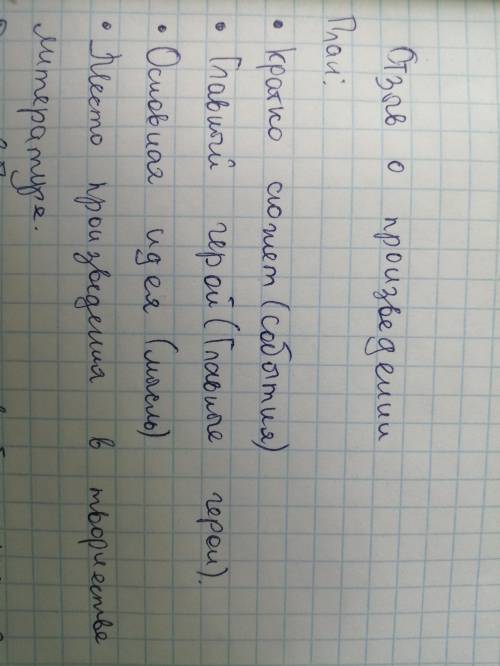 Отзыв о произведении
План:
• Кратко сюжет (события)
• Главный герой (Главные герои).
• Основная идея (мысль)
• Место произведения в творчестве
литературе.